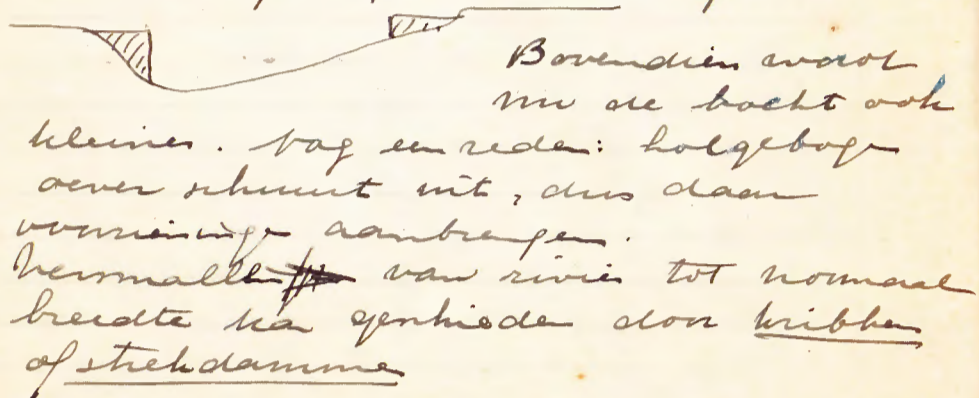 Bovendien wordt
nu de bocht ook
kleiner. Nog een reden: holgebogen
oever schuurt uit, dus daar
voorzieningen aanbrengen.
Versmallen van rivier tot normaal
breedte kan geschieden door kribben
of strekdammen